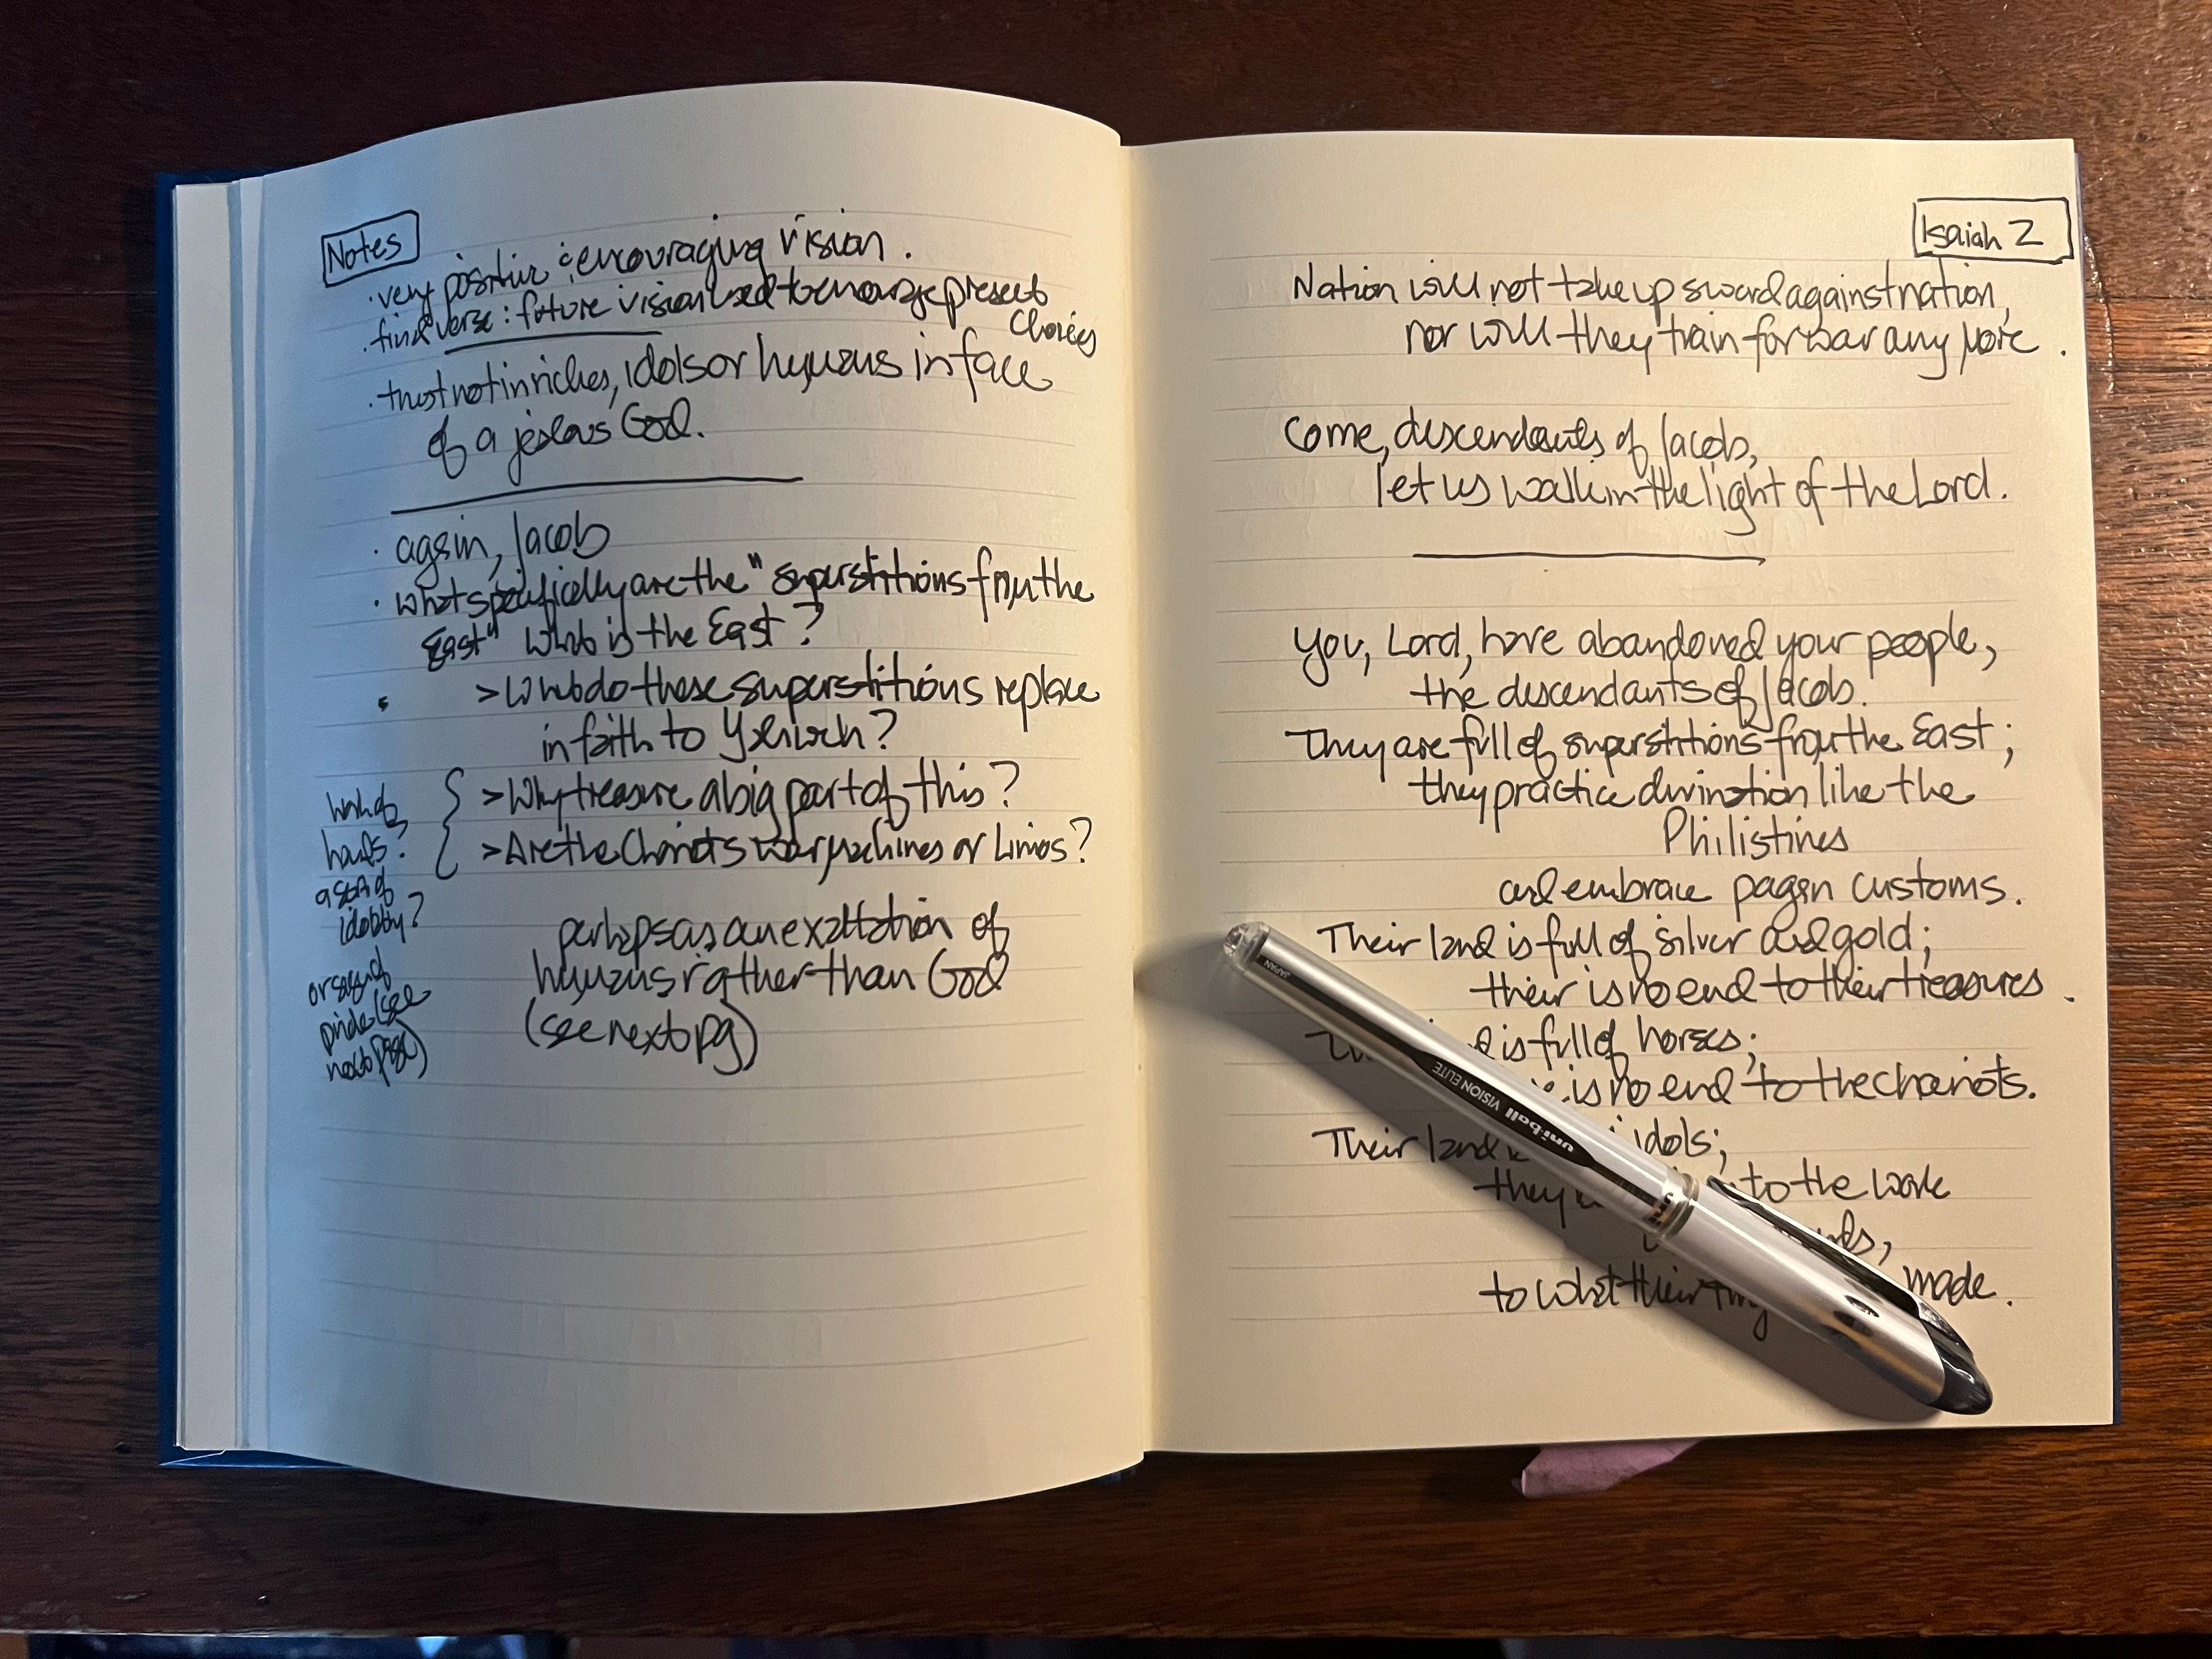 Notes
· very positive & encouraging vision.
· find verse: future vision used to encourage present
choices
· trust not in riches, idols or humans in face
of a jealous God.
· again, Jacob
· what specifically are the "superstitions from the
East" What is the East?
> What do these superstitions replace
in faith to Yahweh?
> Why treasure a big part of this?
> Are the Chariots war machines or Limos?
work of
hands?
a sort of
idolatry?
or sign of
pride (see
next page)
perhaps as an exaltation of
humans rather than God
(see next pg)
Isaiah 2
Nation will not take up sword against nation,
nor will they train for war any more.
Come, descendants of Jacob,
let us walk in the light of the Lord.
You, Lord, have abandoned your people,
the descendants of Jacob.
They are full of superstitions from the East;
they practice divination like the
Philistines
and embrace pagan customs.
Their land is full of silver and gold;
their is no end to their treasures.
is full of horses;
is no end to the chariots.
Their land idols;
they to the work
to what their made.
JAPAN
uni-ball VISION ELITE
uni